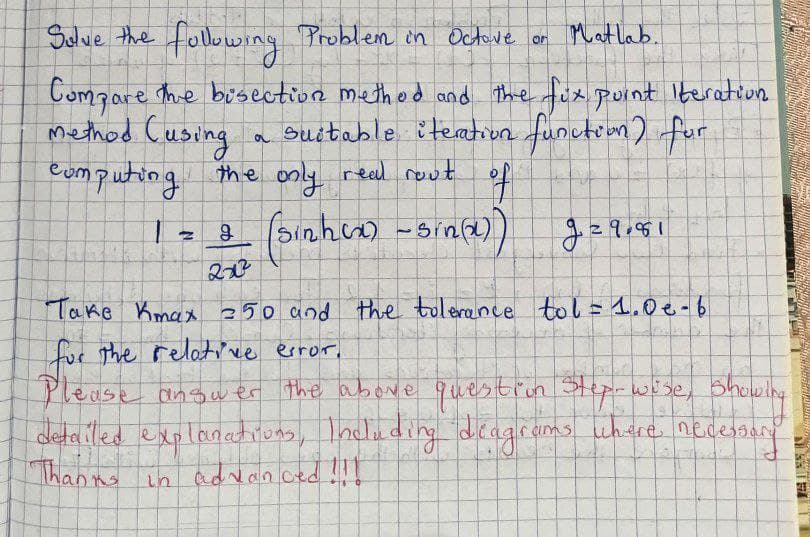 Solve the following Problem in Octave or Matlab.
Compare the bisection method and the fix point Iteration
method (using a suitable iteration function) for
computing the only real root of
1 = g/2x² (sinh(x) - sin(x)) g = 9.81
Take Kmax = 50 and the tolerance tol = 1.0e-6
for the relative error.
Please answer the above question Step-wise, showing
detailed explanations, Including diagrams where necessary
Thanks in advanced !!!